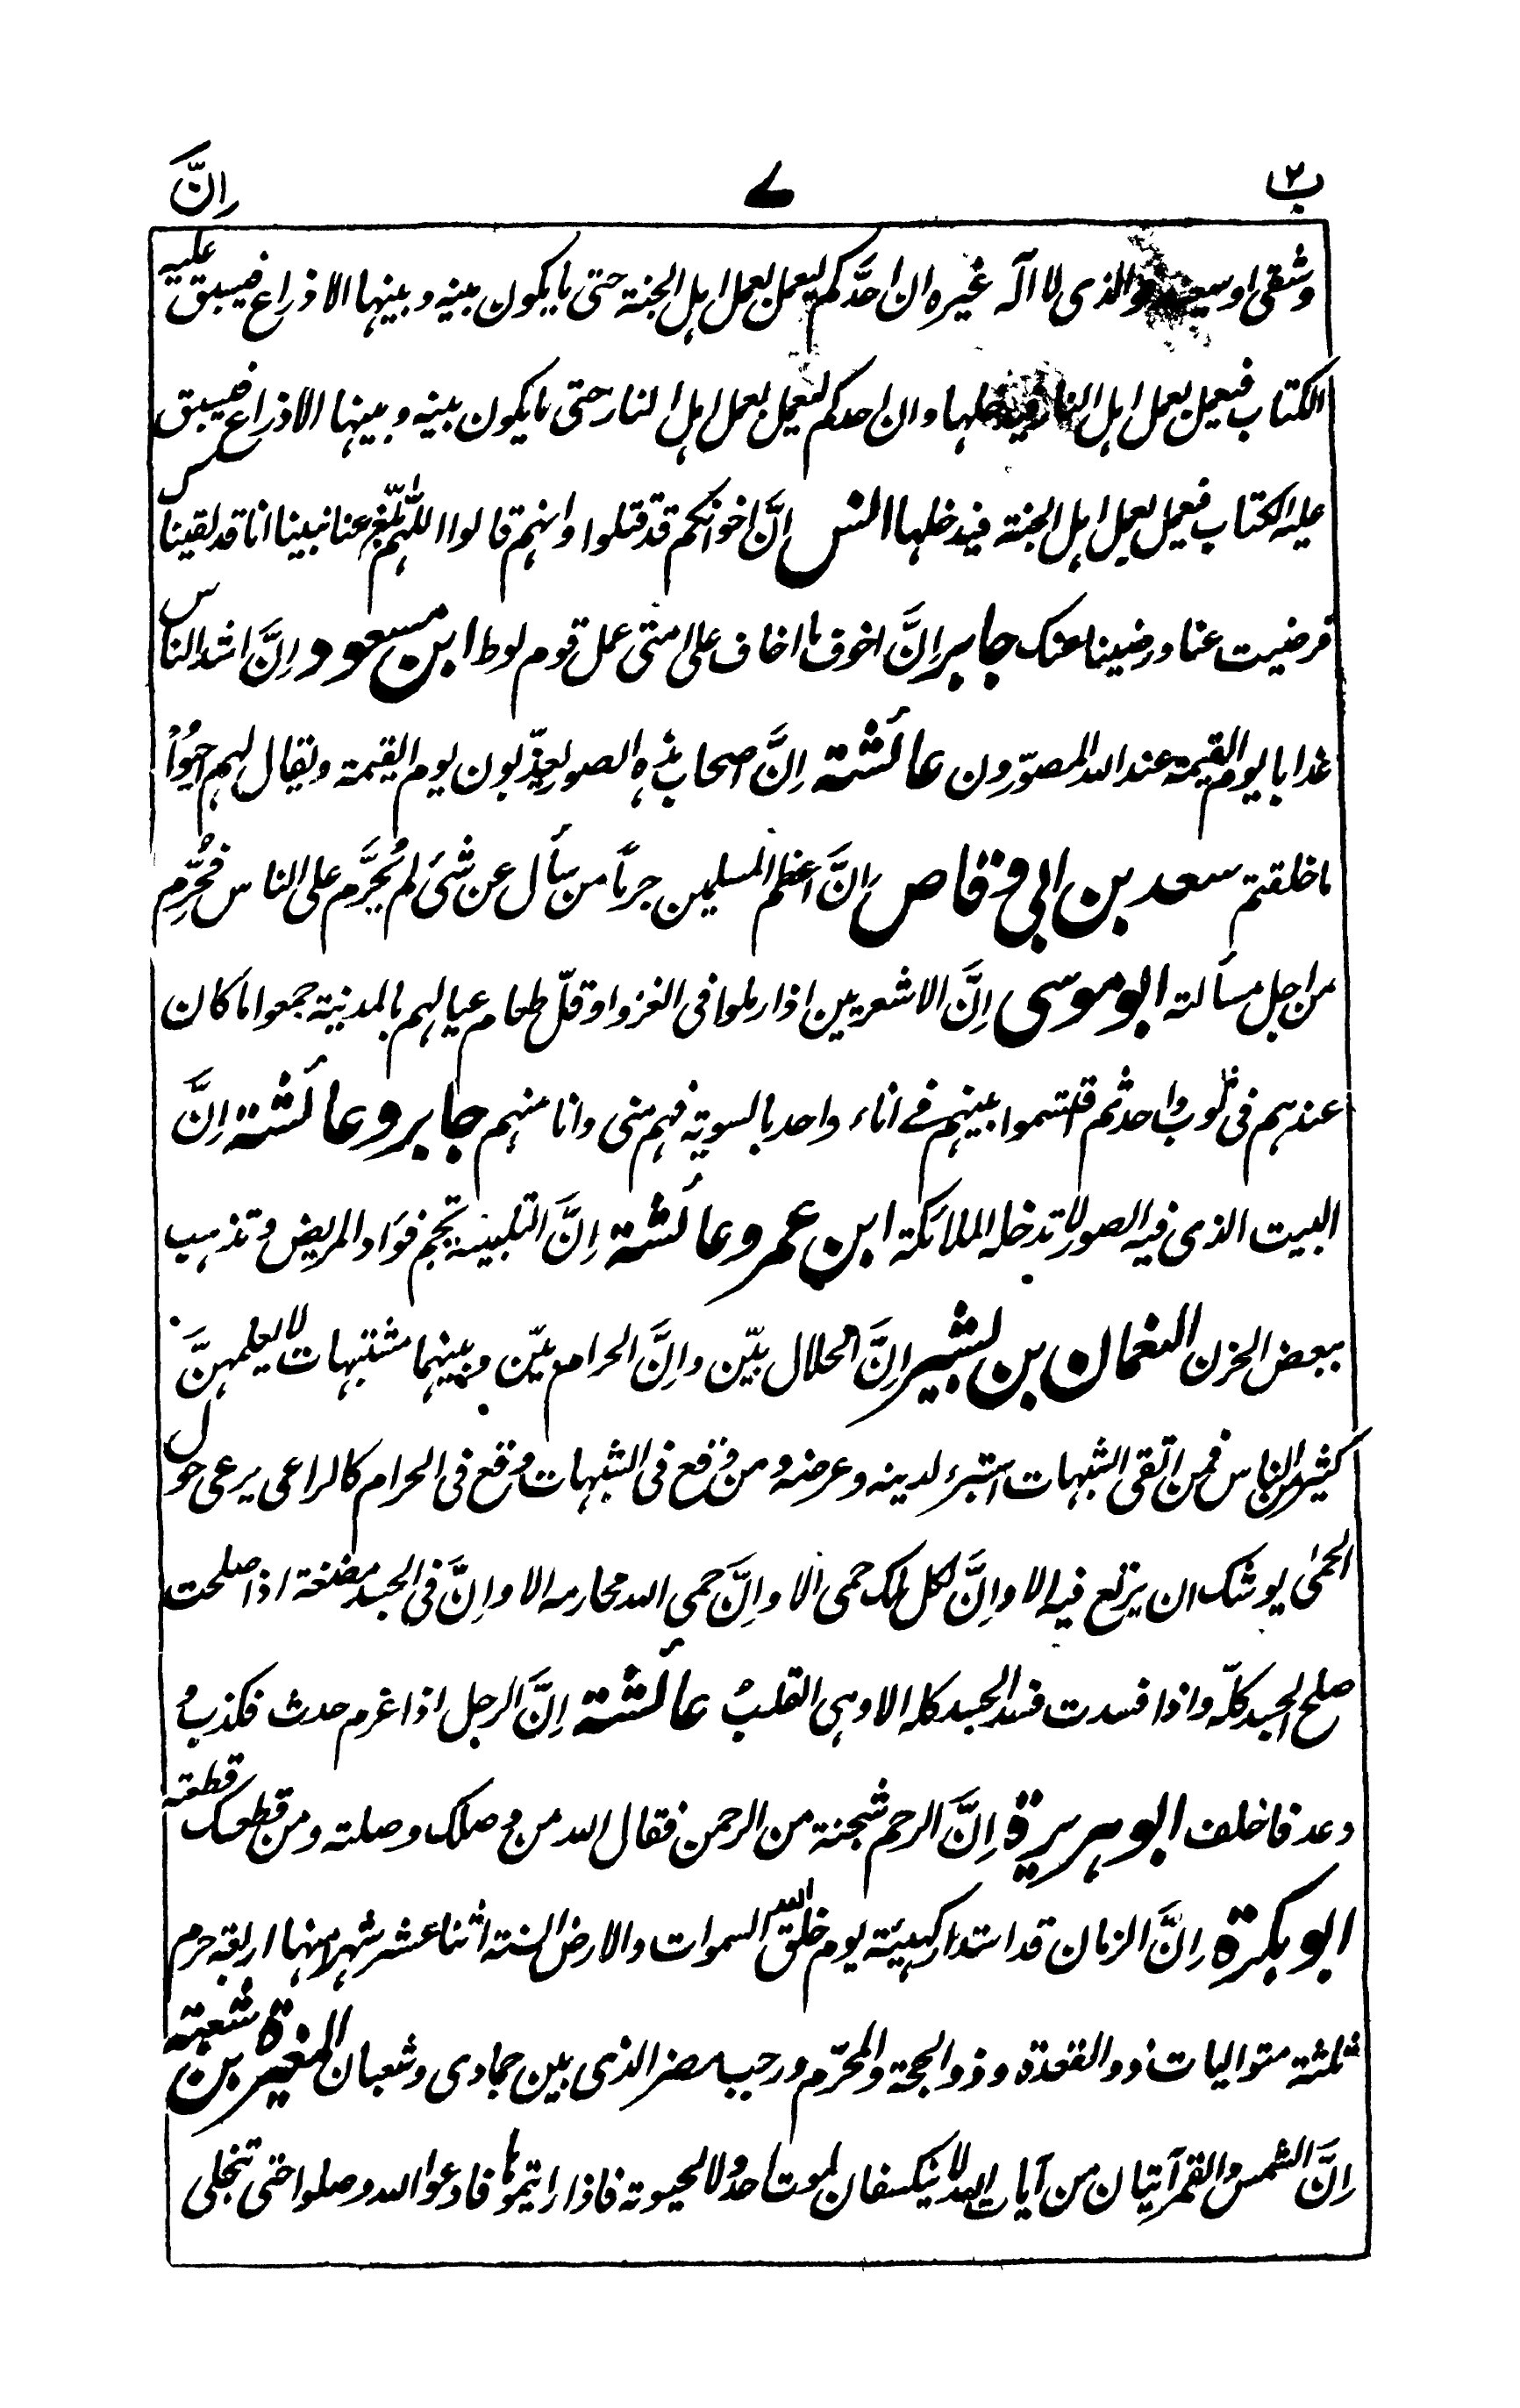 ب۲ ۷ اِنَّ
وشقی او سعید والذی لا اله غیره ان احدَّکم لیعمل بعمل اہل الجنة حتی ما یکون بینه و بینہا الا ذراع فیسبق علیه
الکتاب فیعمل بعمل اہل النار فیدخلہا و ان احدکم لیعمل بعمل اہل النار حتی ما یکون بینه و بینہا الا ذراع فیسبق
علیه الکتاب فیعمل بعمل اہل الجنة فیدخلہا انس اِنَّ اخوانکم قد قتلوا و انہم قالوا اللّٰہم بلّغ عنا نبینا انا قد لقیناک
فرضیت عنا و رضینا عنک جابر اِنَّ اخوف ما اخاف علی امتی عمل قوم لوط ابن مسعود اِنَّ اشد الناس
عذابا یوم القیمة عند الله المصوّرون عائشة اِنَّ اصحاب ہذہ الصور یعذّبون یوم القیمة ویقال لہم احیُوْا
ما خلقتم سعد بن ابی وقاص اِنَّ اعظم المسلمین جرماً من سأل عن شیٔ لم یُحَرَّم علی الناس فحُرِّم
من اجل مسألته ابو موسی اِنَّ الاشعریین اذا رملوا فی الغزو او قلّ طعام عیالہم بالمدینة جمعوا ما کان
عندہم فی ثوب واحد ثم اقتسموا بینہم فے اناء واحد بالسویة فہم منی وانا منہم جابر و عائشة اِنَّ
البیت الذی فیه الصور لا تدخله الملائکة ابن عمر و عائشة اِنَّ التلبینة تجم فؤاد المریض و تذہب
ببعض الحزن النعمان بن بشیر اِنَّ الحلال بیّن و اِنَّ الحرام بیّن و بینہما مشتبہات لا یعلمہنَّ
کثیر من الناس فمن اتقی الشبہات استبرء لدینه و عرضه و من وقع فی الشبہات وقع فی الحرام کالراعی یرعی حول
الحمٰی یوشک ان یرتع فیه الا و اِنَّ لکل ملک حمی الا و اِنَّ حمی الله محارمه الا و اِنَّ فی الجسد مضغة اذا صلحت
صلح الجسد کلّه و اذا فسدت فسد الجسد کله الا وہی القلبُ عائشة اِنَّ الرجل اذا غرم حدث فکذب و
وعد فاخلف ابو ہریرة اِنَّ الرحم شجنة من الرحمن فقال الله من وصلک وصلته و من قطعک قطعته
ابو بکرة اِنَّ الزمان قد استدار کہیئة یوم خلق الله السموات والارض السنة اثنا عشر شہرا منہا اربعة حرم
ثلثة متوالیات ذو القعدة و ذو الحجة والمحرّم و رجب مضر الذی بین جمادی و شعبان المغیرة بن شعبة
اِنَّ الشمس والقمر آیتان من آیات الله لا ینکسفان لموت احد ولا لحیوته فاذا رایتموہا فادعوا الله وصلوا حتی تنجلی